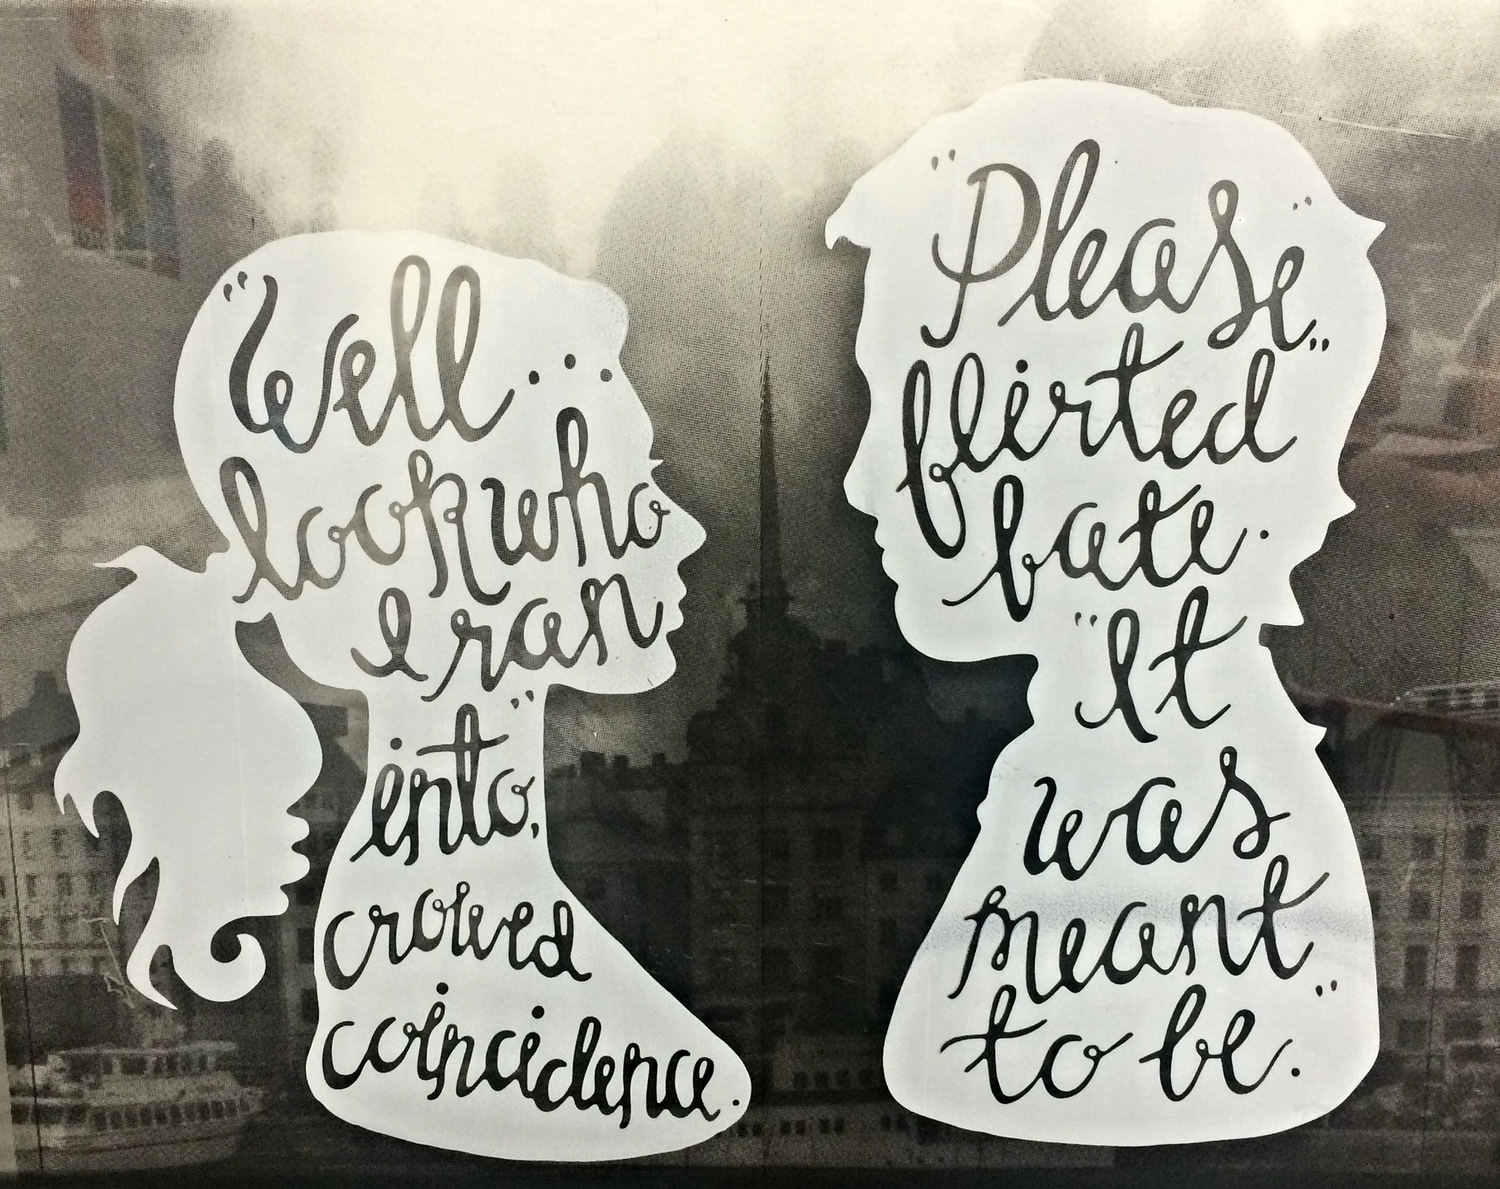 "Well...
look who
I ran
into",
crowed
coincidence.
"Please",
flirted
fate.
"It
was
meant
to be".